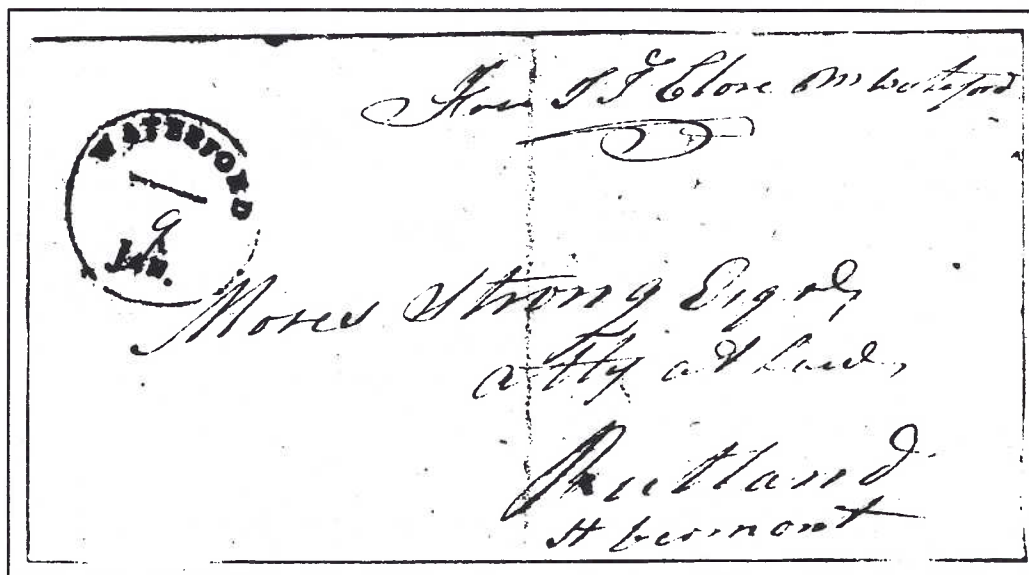 From J J Close PM Waterford
WATERFORD
9
Jan.
Moses Strong Esqr
Atty at Law,
Rutland
Vermont